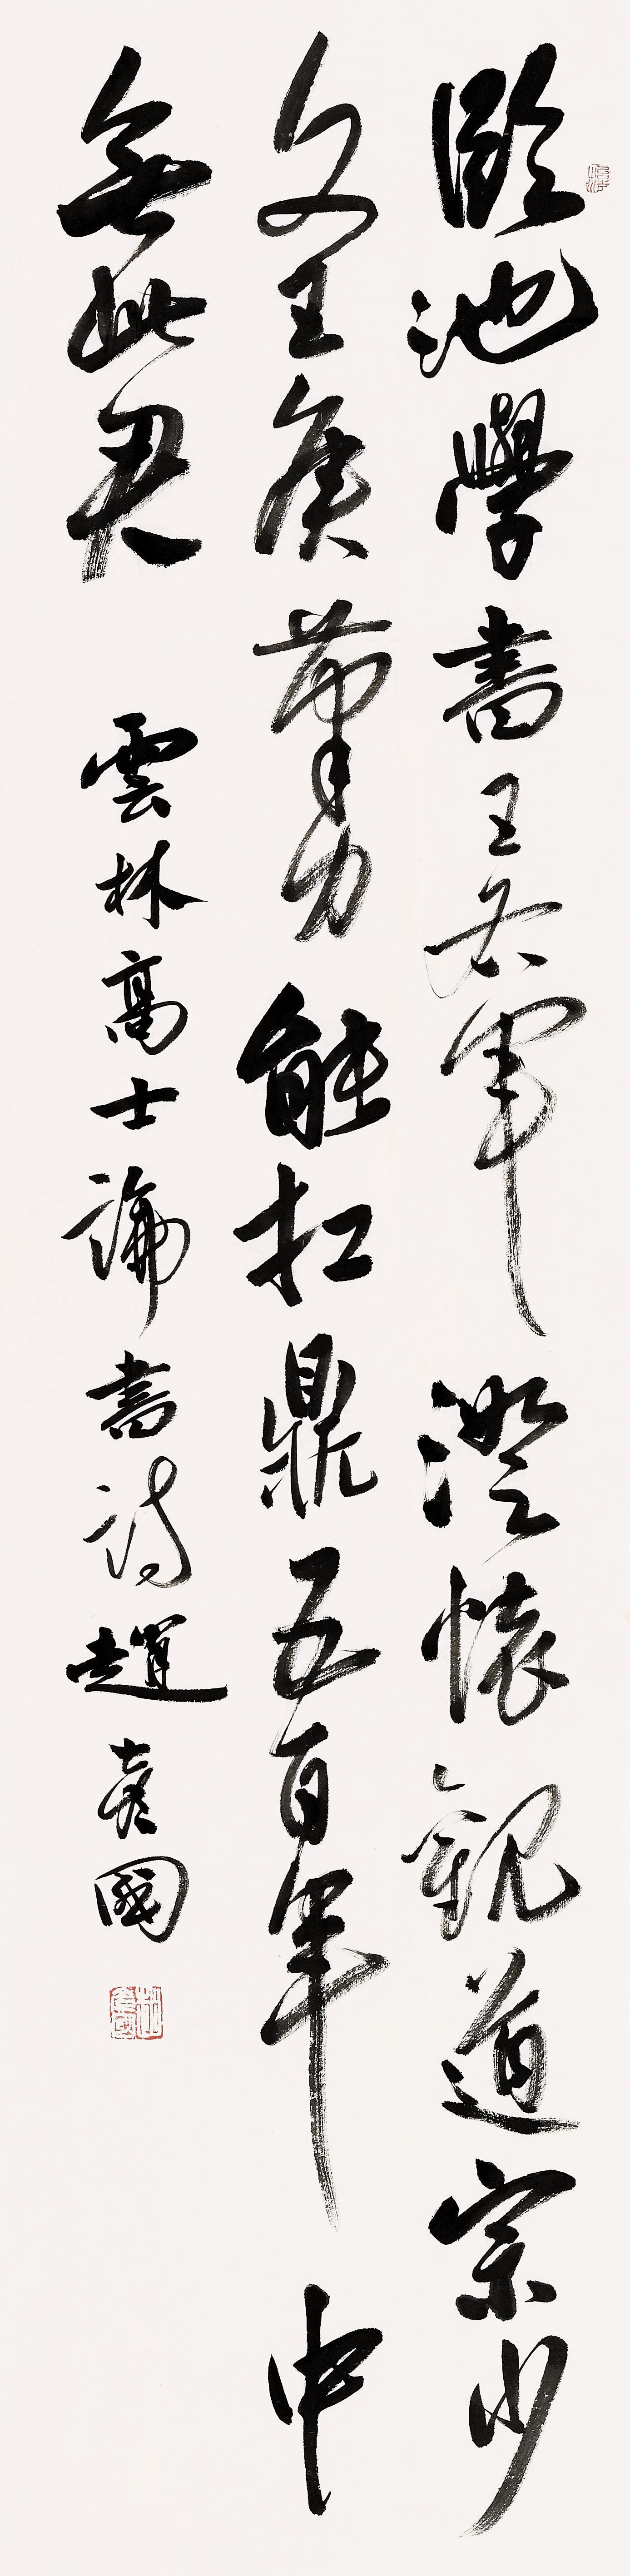 臨池學書王右軍澄懷觀道宗少
文王侯筆力能扛鼎五百年中
無此君
雲林高士論書詩趙彥國
趙彥國